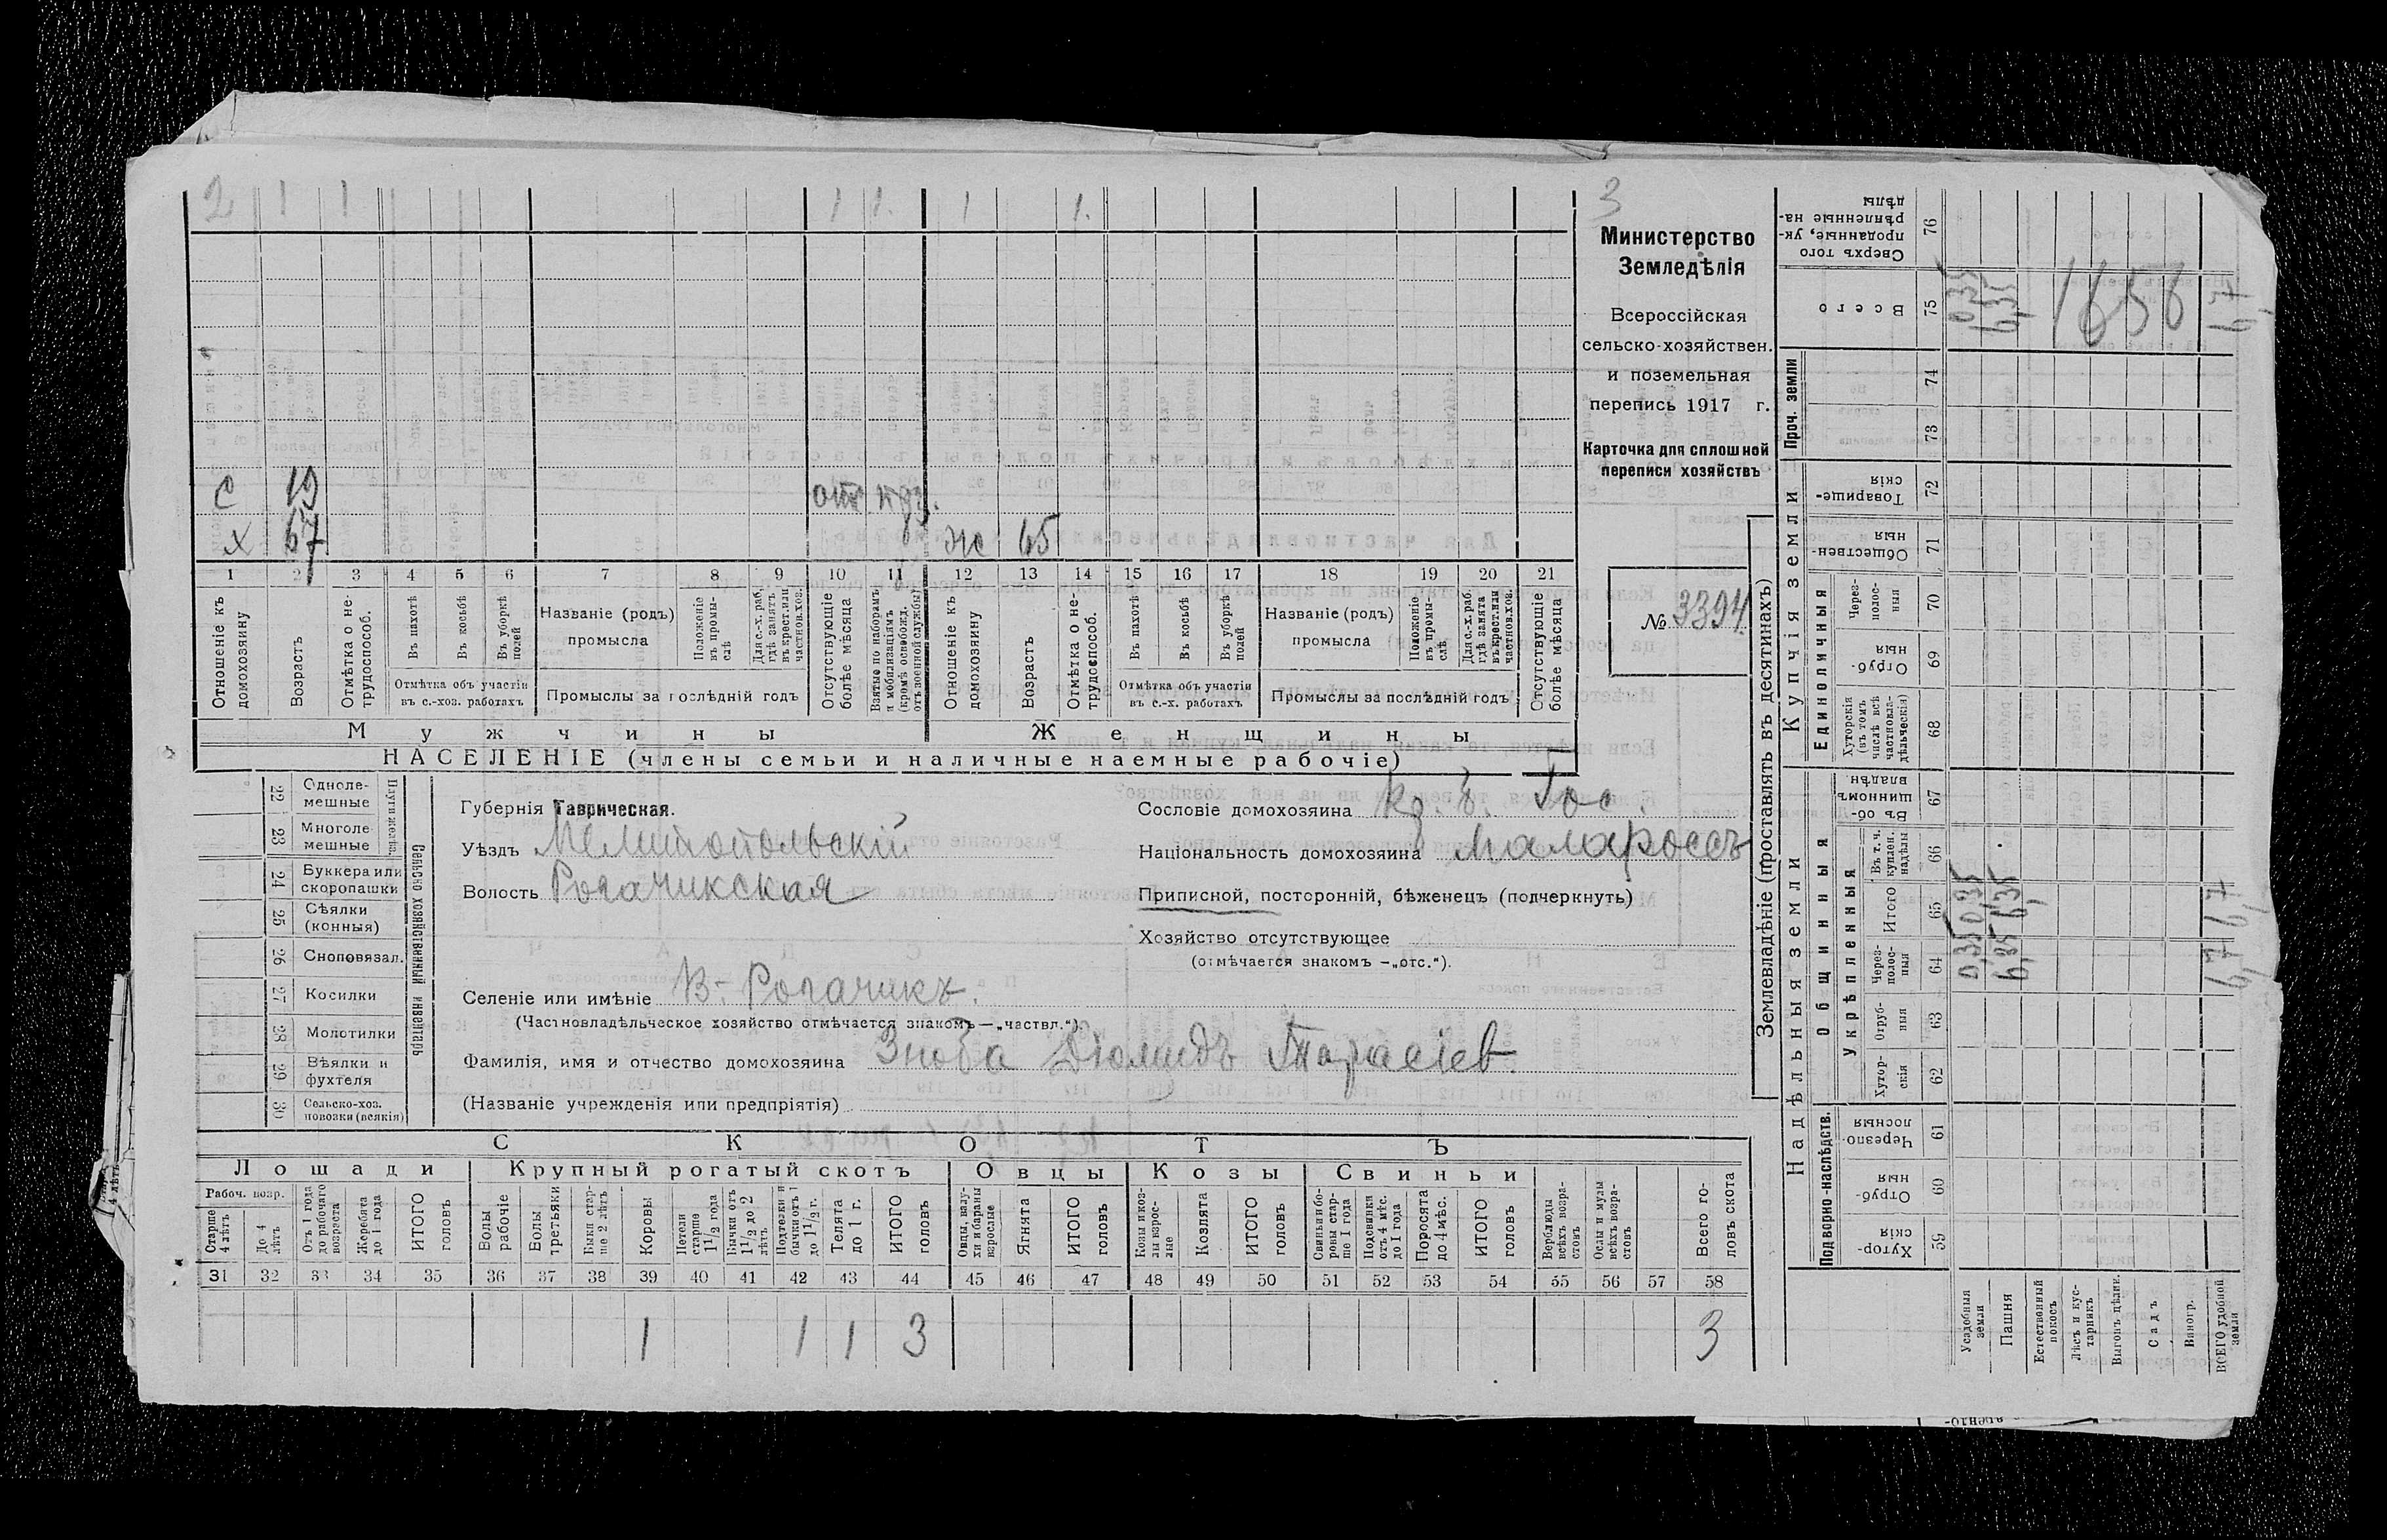 2 1 1 1 1. 1 1. 3
С 19 отс. вдз.
Х 67 ж 65
1 2 3 4 5 6 7 8 9 10 11 12 13 14 15 16 17 18 19 20 21
Отношеніе къ домохозяину
Возрастъ
Отмѣтка о не-трудоспособ.
Въ пахотѣ
Въ косьбѣ
Въ уборкѣ полей
Отмѣтка объ участіи въ с.-хоз. работахъ
Названіе (родъ) промысла
Положеніе въ промы-слѣ
Для с.-х. раб. гдѣ занятъ въ крест. или частнов. хоз.
Промыслы за послѣдній годъ
Отсутствующіе болѣе мѣсяца
Взятые по наборамъ и мобилизаціямъ (кромѣ освобожд. отъ военной службы)
Отношеніе къ домохозяину
Возрастъ
Отмѣтка о не-трудоспособ.
Въ пахотѣ
Въ косьбѣ
Въ уборкѣ полей
Отмѣтка объ участіи въ с.-х. работахъ
Названіе (родъ) промысла
Положеніе въ промы-слѣ
Для с.-х. раб. гдѣ занята въ крест. или частнов. хоз.
Промыслы за послѣдній годъ
Отсутствующіе болѣе мѣсяца
Мужчины Женщины
НАСЕЛЕНІЕ (члены семьи и наличные наемные рабочіе)
Министерство
Земледѣлія
Всероссійская
сельско-хозяйствен.
и поземельная
перепись 1917 г.
Карточка для сплошной
переписи хозяйствъ
№ 3394
22 Одноле-мешные
23 Многоле-мешные
Плуги желѣз.
24 Буккера или скоропашки
25 Сѣялки (конныя)
26 Сноповязал.
27 Косилки
28 Молотилки
29 Вѣялки и фухтеля
30 Сельско-хоз. повозки (всякія)
Сельско хозяйственный инвентарь
Губернія Таврическая.
Уѣздъ Мелитопольскій
Волость Рогачикская
Селеніе или имѣніе В.-Рогачикъ.
(Частновладѣльческое хозяйство отмѣчается знакомъ—„частвл.“)
Фамилія, имя и отчество домохозяина Зноба Діомидъ Тарасіев
(Названіе учрежденія или предпріятія)
Сословіе домохозяина Кр. б. Гос.
Національность домохозяина малороссъ
Приписной, посторонній, бѣженецъ (подчеркнуть)
Хозяйство отсутствующее
(отмѣчается знакомъ —„отс.“).
СКОТЪ
Лошади Крупный рогатый скотъ Овцы Козы Свиньи
Рабоч. возр.
Старше 4 лѣтъ
До 4 лѣтъ
Отъ 1 года до рабочаго возраста
Жеребята до 1 года
ИТОГО головъ
Волы рабочіе
Волы третьяки
Быки стар-ше 2 лѣтъ
Коровы
Нетели старше 1½ года
Бычки отъ 1½ до 2 лѣтъ
Подтелки и бычки отъ 1 до 1½ г.
Телята до 1 г.
ИТОГО головъ
Овцы, валу-хи и бараны взрослые
Ягнята
ИТОГО головъ
Козы и коз-лы взрос-лые
Козлята
ИТОГО головъ
Свиньи и бо-ровы стар-ше 1 года
Подсвинки отъ 4 мѣс. до 1 года
Поросята до 4 мѣс.
ИТОГО головъ
Верблюды всѣхъ возра-стовъ
Ослы и мулы всѣхъ возра-стовъ
Всего го-ловъ скота
31 32 33 34 35 36 37 38 39 40 41 42 43 44 45 46 47 48 49 50 51 52 53 54 55 56 57 58
1 1 1 3 3
Землевладѣніе (проставлять въ десятинахъ)
Надѣльныя земли Купчія земли Проч. земли
Подворно-наслѣдств.
Общинныя
Укрѣпленныя
Единоличныя
Хутор-скія 59
Отруб-ныя 60
Черезпо-лосныя 61
Хутор-скія 62
Отруб-ныя 63
Через-полос-ныя 64
Итого 65
Въ т. ч. куплен. надѣлы 66
Въ об-щинномъ владѣн. 67
Хуторскія (въ томъ числѣ всѣ частновла-дѣльческія) 68
Отруб-ныя 69
Через-полос-ныя 70
Обществен-ныя 71
Товарище-скія 72
73
74
Всего 75
Сверхъ того проданные, ук-рѣпленные на-дѣлы 76
Усадебныя земли 0,35 0,35 0,35
Пашня 6,35 6,35 6,35
Естественный покосъ
Лѣсъ и кус-тарникъ
Выгонъ цѣлин.
Садъ
Виногр.
ВСЕГО удобной земли 6,7 6,7 6,7
1656